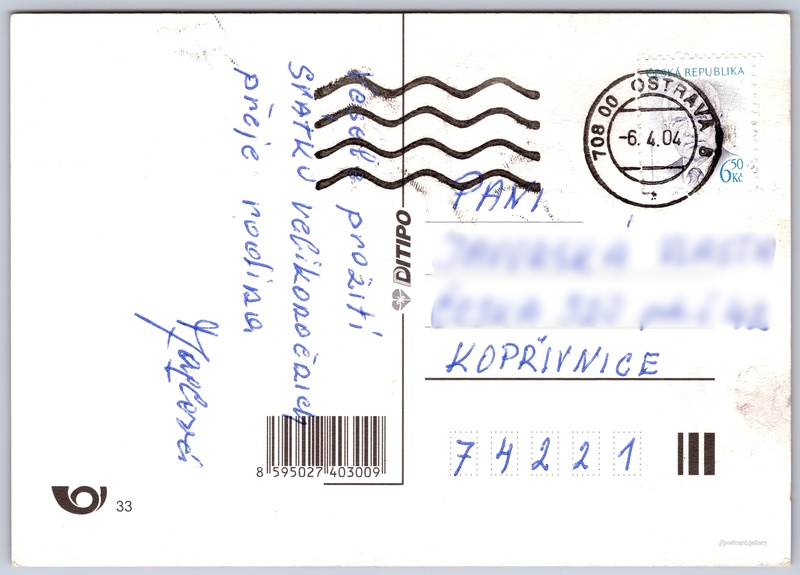 Veselé prožití
svátků velikonočních
přeje rodina
DITIPO
8 595027 403009
33
ČESKÁ REPUBLIKA
6 50 Kč
708 00 OSTRAVA 8
-6. 4. 04
PANÍ
KOPŘIVNICE
7 4 2 2 1